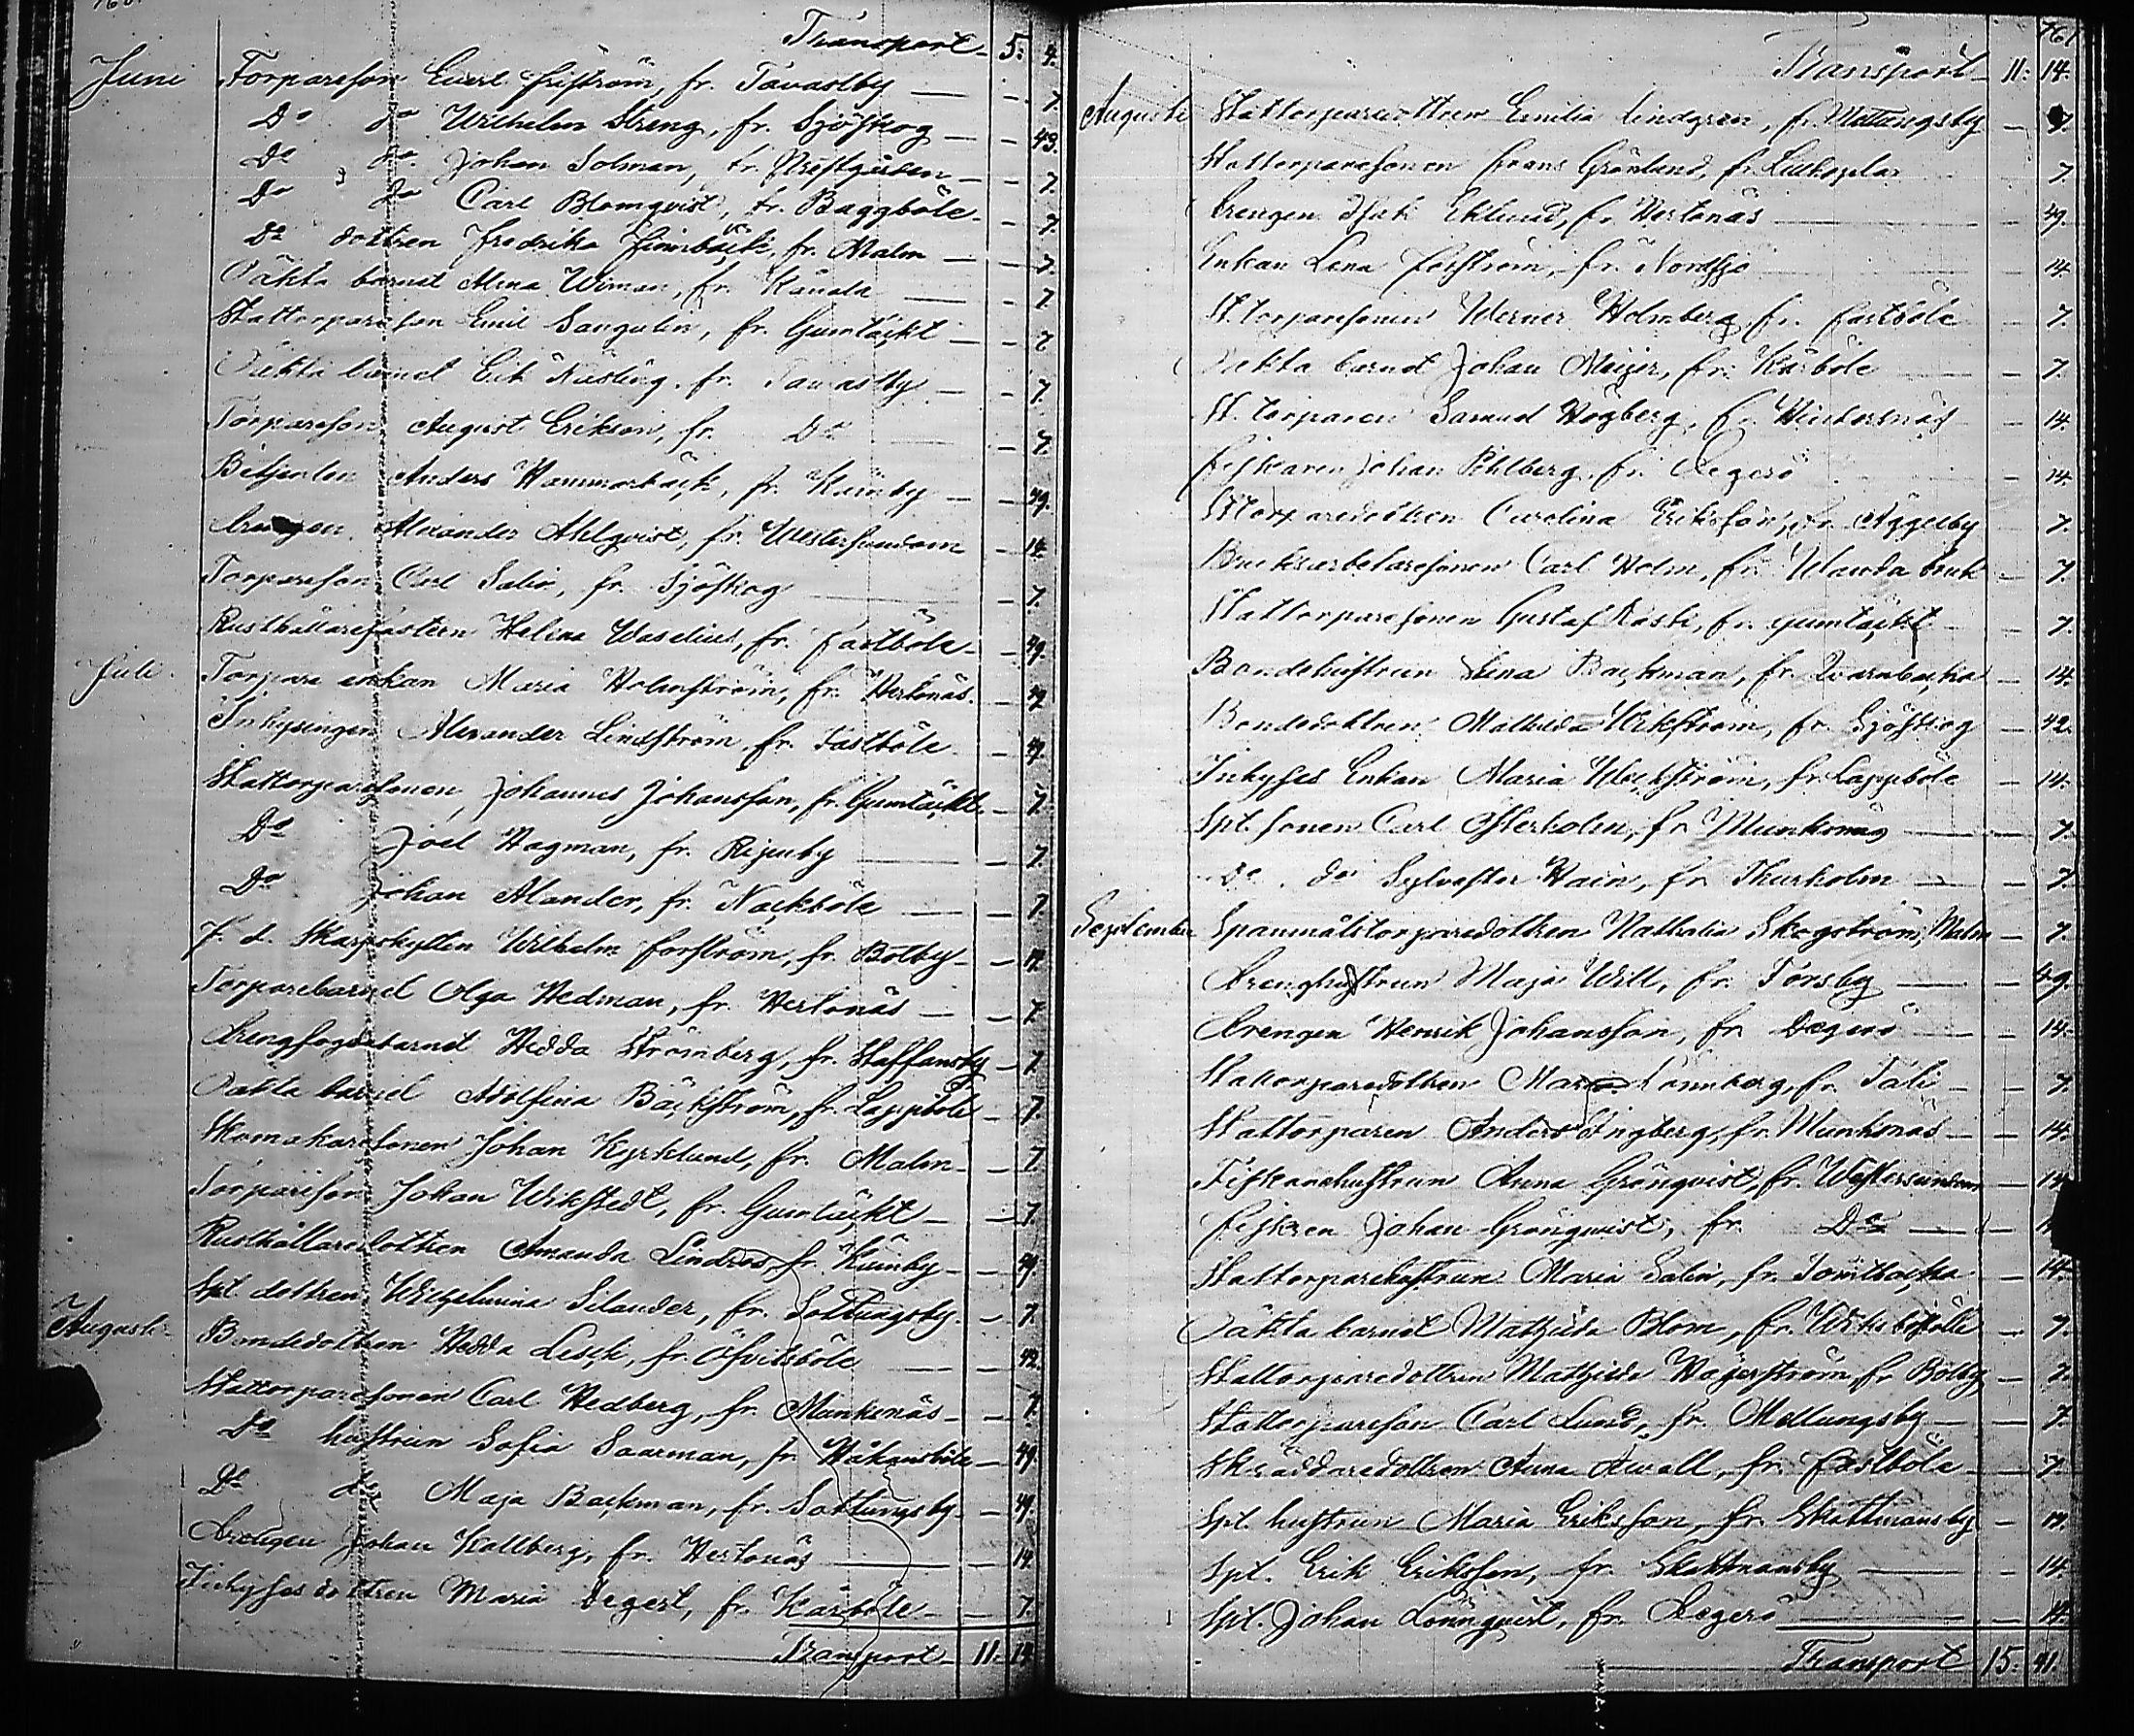 Transport - 5: 4.
Juni Torpareson Evert Friström, fr. Tavastby — - 7.
Do do Wilhelm Streng, fr. Sjöskog - - 43.
Do do Johan Solman, fr. Prestgården - - 7.
Do do Carl Blomqvist, fr. Baggböle - - 7.
Do dottren Fredrika Finnbäck, fr. Malm - - 7.
Oäkta barnet Mina Wiman, fr. Kånala — - 7
Stattorpareson Emil Sangulin, fr. Gumtäckt - - 7
Oäkta barnet Erik fr. Tavastby - - 7.
Torpareson August Erikson, fr. Do - 7.
Betjenten Anders Hammarbäck, fr. Kånby - - 49.
Drengen Alexander Ahlqvist, fr. Westersundom - 14.
Torpareson Carl Salin, fr. Sjöskog - 7.
Rusthållare Helena Waselius, fr. Fastböle - - 49.
Juli. Torpare enkan Maria Holmström, fr. Hertonäs. - 42
Inhysingen Alexander Lindström, fr. Fastböle - 49.
Stattorparesonen Johannes Johansson, fr. Gumtäckt - 7.
Do Joel Hagman, fr. Ripuby — - 7.
Do Johan Alander, fr. Nackböle — - 7.
F. d. Skarpskytten Wilhelm Forsström, fr. Botby - - 14.
Torparebarnet Olga Hedman, fr. Hertonäs - - 7
Drengfogdebarnet Hedda Strömberg, fr. Staffansby - 7
Oäkta barnet Adolfina Bäckström, fr. Lappböle - 7.
Skomakaresonen Johan Kyrklund, fr. Malm - - 7.
Torpareson Johan Wikstedt, fr. Gumtäckt - - 7.
Rusthållaredottren Amanda Lindros, fr. Kånby - - 49.
Spt. dottren Wilhelmina Silander, fr. Sottungsby. - 7.
Augusti Bondedottren Hedda Lesck, fr. Öfvitsböle - - 42.
Stattorparesonen Carl Hedberg, fr. Munksnäs - - 7.
Do hustrun Sofia Saarman, fr. Håkansböle - 49.
Do do Maja Backman, fr. Sottungsby - - 49.
Drengen Johan Kallberg, fr. Hertonäs — - 14.
Inhyses dottren Maria Degert, fr. Kårböle - - 7.
Transport - 11: 14
761
Transport - 11: 14.
Augusti Stattorparedottren Emilia Lindgren, fr. Mellungsby - 7.
Stattorparesonen Frans Grönlund, fr. 7.
Drengen Isak Eklund, fr. Hertonäs 49.
Enkan Lena Forsström, fr. Nordsjö 14.
St. torparesonen Werner Holmberg, fr. Fastböle - 7.
Oäkta barnet Johan Meijer, fr. Kårböle - 7.
St. torparen Samuel Högberg, fr. - 14.
Fiskaren Johan Pihlberg, fr. Degerö - 14.
St torparedottren Carolina Eriksson, fr. Åggelby 7.
Bruksarbetaresonen Carl Holm, fr. Wanda bruk - 7.
Stattorparesonen Gustaf Rask, fr. Gumtäckt - 7.
Bondehustrun Lena Backman, fr. Qvarnbacka - 14.
Bondedottren Mathilda Wikström, fr. Sjöskog - 42.
Inhyses Enkan Maria Weckström, fr. Lappböle - 14.
Spt. sonen Carl Österholm, fr. Munksnäs - 7.
Do do Sylvester Hain, fr. Thurholm - - 7.
September Spanmålstorparedottren Nathalia Skogström, Malm - 7.
Drenghustrun Maja Will, fr. Torsby — - 49.
Drengen Henrik Johansson, fr. Degerö - - 14.
Stattorparedottren Maria Lönnberg, fr. Tali - - 7.
Stattorparen Anders Engberg, fr. Munksnäs - - 14.
Fiskarehustrun Anna Grönqvist, fr. Westersundom - 14
Fiskren Johan Grönqvist, fr. Do — -
Stattorparehustrun Maria Salin, fr. Tomtbacka - 14.
Oäkta barnet Mathilda Blom, fr. - 7.
Stattorparedottren Mathilda Hägerström, fr. Botby - 7.
Stattorpareson Carl Lund, fr. Mellungsby - - 7.
Skräddaredottren Anna Awell, fr. Fastböle - 7.
Spt. hustrun Maria Eriksson, fr. Skattmansby - 14.
Spt. Erik Eriksson, fr. Skattmansby — - 14.
Spt. Johan Lönnqvist, fr. Degerö — - 14.
Transport 15: 41.